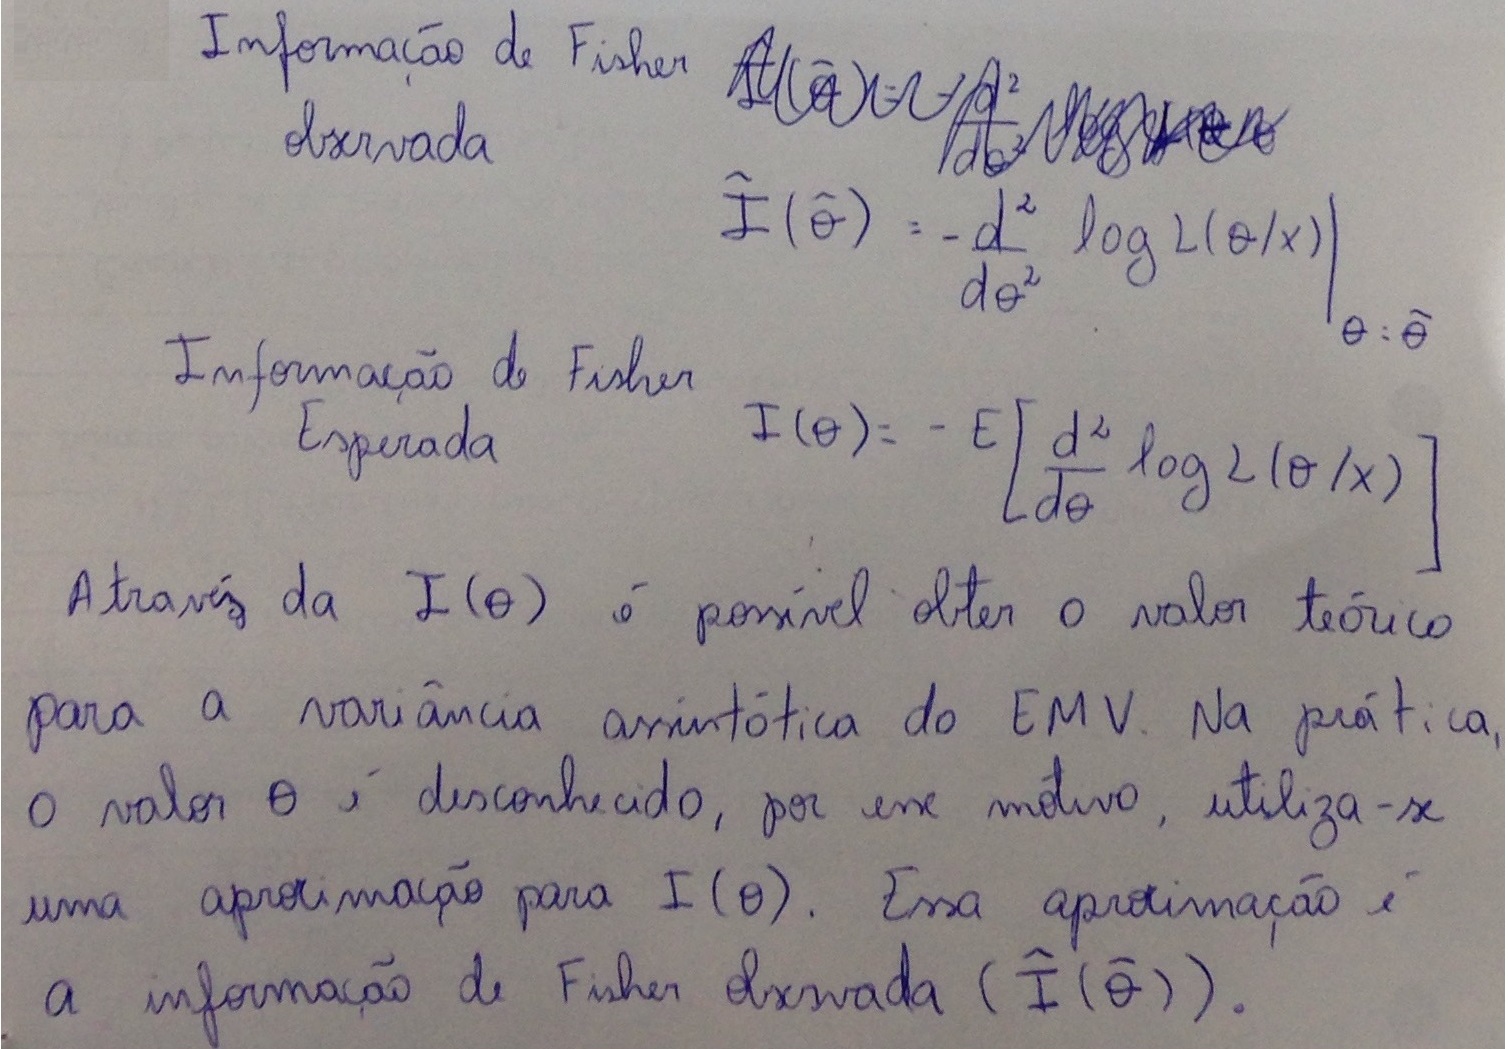 Informação de Fisher
observada
Î(θ̂) = -d²/dθ² log L(θ/x)|θ=θ̂
Informação de Fisher
Esperada
I(θ) = - E[d²/dθ log L(θ/x)]
Através da I(θ) é possível obter o valor teórico
para a variância assintótica do EMV. Na prática,
o valor θ é desconhecido, por esse motivo, utiliza-se
uma aproximação para I(θ). Essa aproximação é
a informação de Fisher observada (Î(θ̂)).